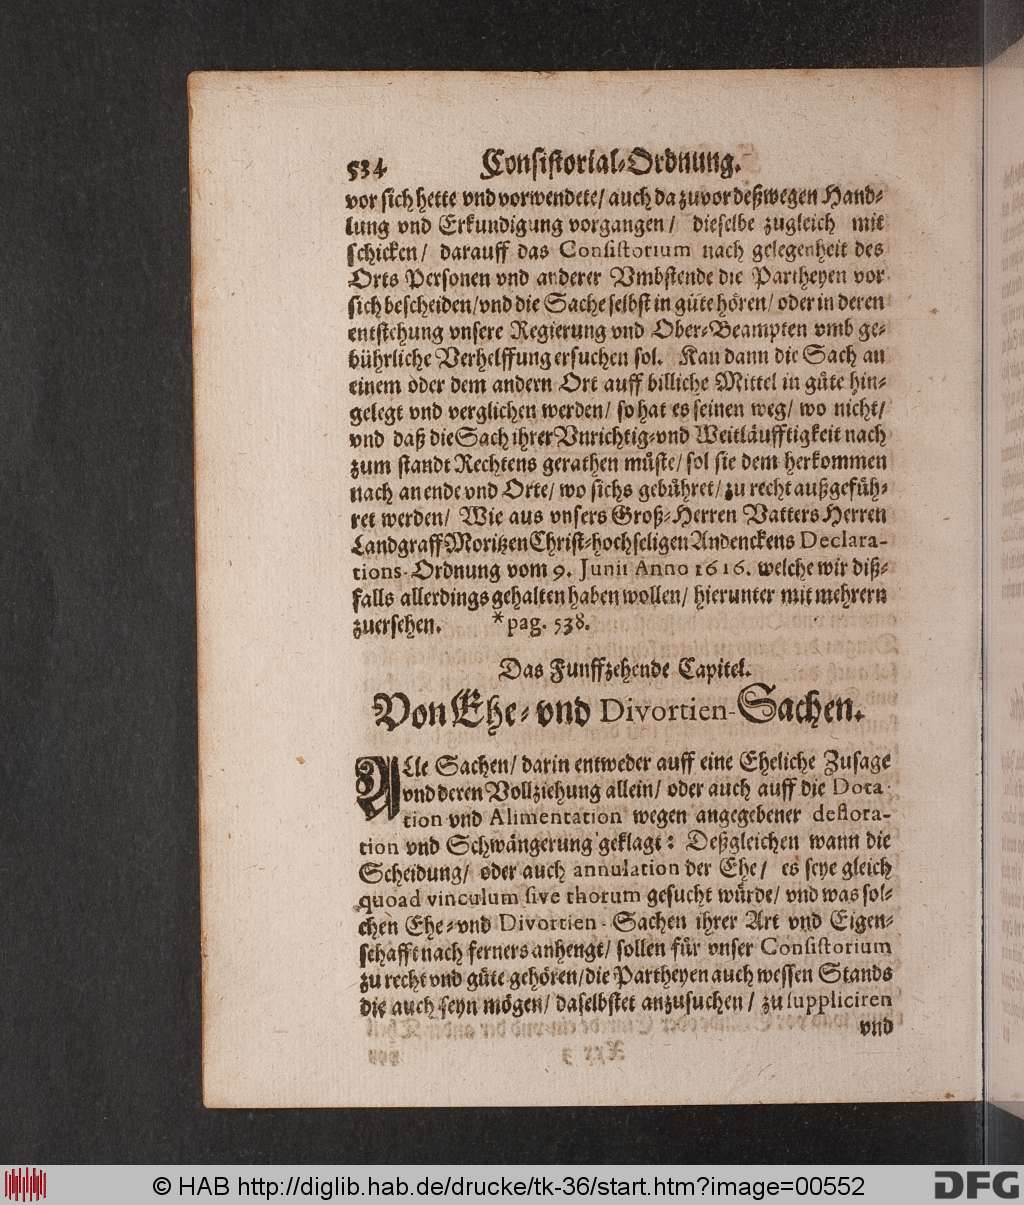 534 Consistorial-Ordnung.
vor sich hette vnd vorwendete/ auch da zuvor deßwegen Hand-
lung vnd Erkundigung vorgangen/ dieselbe zugleich mit
schicken/ darauff das Consistorium nach gelegenheit des
Orts Personen vnd anderer Vmbstende die Partheyen vor
sich bescheiden/ vnd die Sache selbst in güte hören/ oder in deren
entstehung vnsere Regierung vnd Ober-Beampten vmb ge-
bührliche Verhelffung ersuchen sol. Kan dann die Sach an
einem oder dem andern Ort auff billiche Mittel in güte hin-
gelegt vnd verglichen werden/ so hat es seinen weg/ wo nicht/
vnd daß die Sach ihrer Vnrichtig-vnd Weitläufftigkeit nach
zum standt Rechtens gerathen müste/ sol sie dem herkommen
nach an ende vnd Orte/ wo sichs gebühret/ zu recht außgefüh-
ret werden/ Wie aus vnsers Groß-Herren Vatters Herren
Landgraff Moritzen Christ-hochseligen Andenckens Declara-
tions-Ordnung vom 9. Junii Anno 1616. welche wir diß-
falls allerdings gehalten haben wollen/ hierunter mit mehrern
zuersehen. *pag. 538.
Das Funffzehende Capitel.
Von Ehe-vnd Divortien-Sachen.
ALle Sachen/ darin entweder auff eine Eheliche Zusage
vnd deren Vollziehung allein/ oder auch auff die Dota-
tion vnd Alimentation wegen angegebener deflora-
tion vnd Schwängerung geklagt: Deßgleichen wann die
Scheidung/ oder auch annulation der Ehe/ es seye gleich
quoad vinculum sive thorum gesucht würde/ vnd was sol-
chen Ehe-vnd Divortien-Sachen ihrer Art vnd Eigen-
schafft nach ferners anhengt/ sollen für vnser Consistorium
zu recht vnd güte gehören/ die Partheyen auch wessen Stands
die auch seyn mögen/ daselbstet anzusuchen/ zu suppliciren
vnd
© HAB http://diglib.hab.de/drucke/tk-36/start.htm?image=00552
DFG